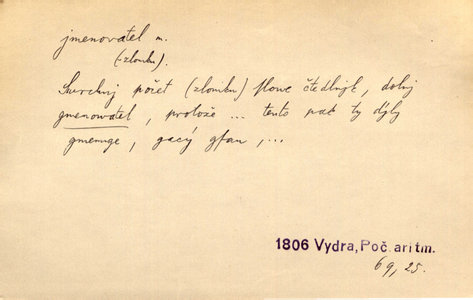 jmenovatel m.
(-zlomku).
Swrchnj počet (zlomku) slowe čtedlnjk, dolnj
gmenowatel, protože ... tento pak ty djly
gmenuge, gacý gsau, ...
1806 Vydra, Poč. aritm.
69, 25.